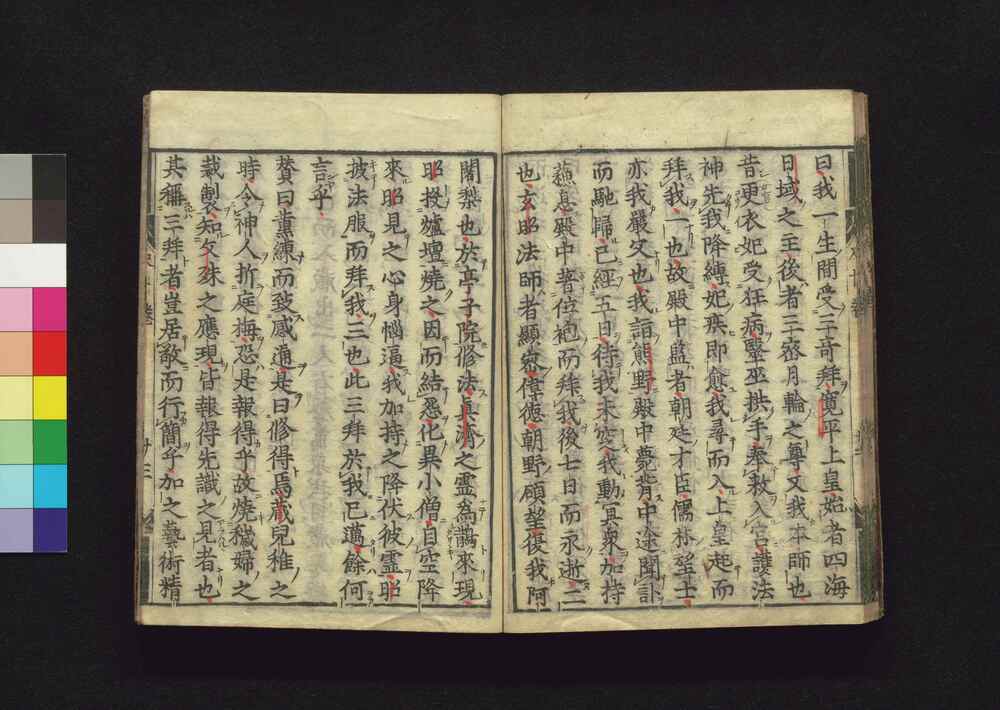 曰我一生間受三奇拜寛平上皇始者四海
日域之王後者三密月輪之尊又我本師也
昔更衣妃受狂病毉巫拱手奉敕入宮護法
神先我降縛妃疾即愈我尋而入上皇起而
拜我一也故殿中監者朝廷才臣儒林望士
亦我嚴父也我詣熊野殿中薨背中途聞訃
而馳歸已經五日待我未定我動冥衆加持
蘇息殿中著位袍而拜我後七日而永逝二
也玄昭法師者顯密偉德朝野碩望復我阿
闍梨也於亭子院修法眞濟之靈爲鵲來現
昭投爐壇燒之因而結惡化異小僧自空降
來昭見之心身惱逼我加持之降伏彼靈昭
披法服而拜我三也此三拜於我已邁餘何
言乎
賛曰薰練而致感通是曰修得焉藏兒稚之
時令神人折庭梅恐是報得乎故燒穢婦之
裁製知文殊之應現皆報得先識之見者也
其稱三拜者豈居敖而行簡乎加之藝術精